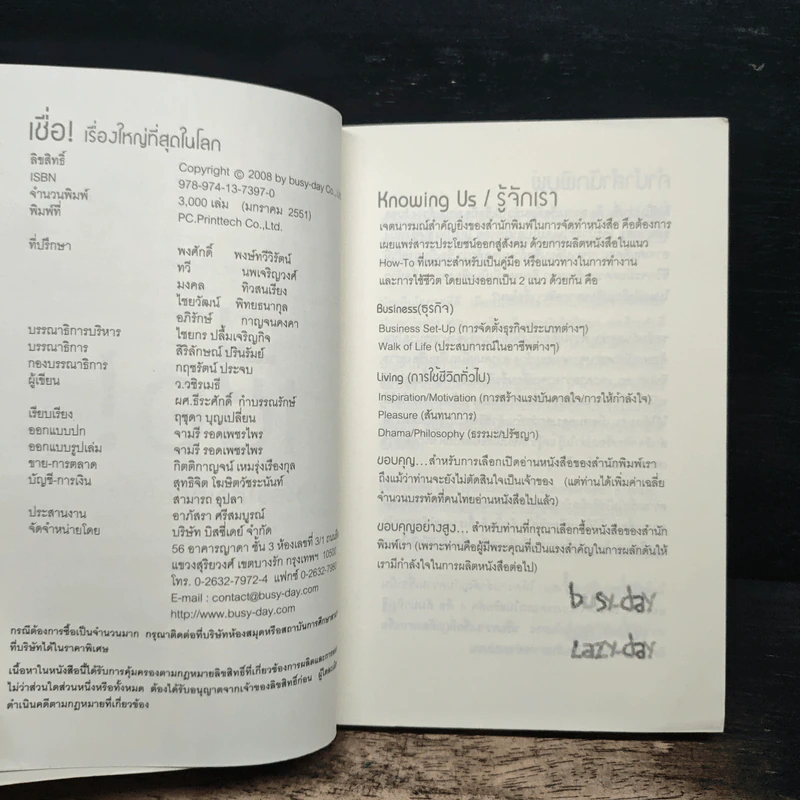 เชื่อ! เรื่องใหญ่ที่สุดในโลก
ลิขสิทธิ์ Copyright © 2008 by busy-day Co.,
ISBN 978-974-13-7397-0
จำนวนพิมพ์ 3,000 เล่ม (มกราคม 2551)
พิมพ์ที่ PC.Printtech Co.,Ltd.
ที่ปรึกษา พงศักดิ์ พงษ์ทวีวิรัตน์
ทวี นพเจริญวงศ์
มงคล ทิวสนเรียง
ไชยวัฒน์ พิทยธนากุล
อภิรักษ์ กาญจนคงคา
บรรณาธิการบริหาร ไชยกร ปลื้มเจริญกิจ
บรรณาธิการ สิริลักษณ์ ปรินรัมย์
กองบรรณาธิการ กฤชรัตน์ ประจบ
ผู้เขียน ว.วชิรเมธี
ผศ.ธีระศักดิ์ กำบรรณรักษ์
เรียบเรียง ฤชุตา บุญเปลี่ยน
ออกแบบปก จามรี รอดเพชรไพร
ออกแบบรูปเล่ม จามรี รอดเพชรไพร
ขาย-การตลาด กิตติกาญจน์ เหมรุ่งเรืองกุล
บัญชี-การเงิน สุทธิจิต โฆษิตวัชระนันท์
สามารถ อุปลา
ประสานงาน อาภัสรา ศรีสมบูรณ์
จัดจำหน่ายโดย บริษัท บิสซี่เดย์ จำกัด
56 อาคารญาดา ชั้น 3 ห้องเลขที่ 3/1
แขวงสุริยวงศ์ เขตบางรัก กรุงเทพฯ 10500
โทร. 0-2632-7972-4 แฟกซ์ 0-2632-
E-mail : contact@busy-day.com
http://www.busy-day.com
กรณีต้องการซื้อเป็นจำนวนมาก กรุณาติดต่อที่บริษัทห้องสมุดหรือสถาบันการศึกษา
ที่บริษัทได้ในราคาพิเศษ
เนื้อหาในหนังสือนี้ได้รับการคุ้มครองตามกฎหมายลิขสิทธิ์ที่เกี่ยวข้องการผลิตและการ
ไม่ว่าส่วนใดส่วนหนึ่งหรือทั้งหมด ต้องได้รับอนุญาตจากเจ้าของลิขสิทธิ์ก่อน
ดำเนินคดีตามกฎหมายที่เกี่ยวข้อง
Knowing Us / รู้จักเรา
เจตนารมณ์สำคัญยิ่งของสำนักพิมพ์ในการจัดทำหนังสือ คือต้องการ
เผยแพร่สาระประโยชน์ออกสู่สังคม ด้วยการผลิตหนังสือในแนว
How-To ที่เหมาะสำหรับเป็นคู่มือ หรือแนวทางในการทำงาน
และการใช้ชีวิต โดยแบ่งออกเป็น 2 แนว ด้วยกัน คือ
Business(ธุรกิจ)
Business Set-Up (การจัดตั้งธุรกิจประเภทต่างๆ)
Walk of Life (ประสบการณ์ในอาชีพต่างๆ)
Living (การใช้ชีวิตทั่วไป)
Inspiration/Motivation (การสร้างแรงบันดาลใจ/การให้กำลังใจ)
Pleasure (สันทนาการ)
Dhama/Philosophy (ธรรมะ/ปรัชญา)
ขอบคุณ...สำหรับการเลือกเปิดอ่านหนังสือของสำนักพิมพ์เรา
ถึงแม้ว่าท่านจะยังไม่ตัดสินใจเป็นเจ้าของ (แต่ท่านได้เพิ่มค่าเฉลี่ย
จำนวนบรรทัดที่คนไทยอ่านหนังสือไปแล้ว)
ขอบคุณอย่างสูง... สำหรับท่านที่กรุณาเลือกซื้อหนังสือของสำนัก
พิมพ์เรา (เพราะท่านคือผู้มีพระคุณที่เป็นแรงสำคัญในการผลักดันให้
เรามีกำลังใจในการผลิตหนังสือต่อไป)
busy-day
Lazy-day